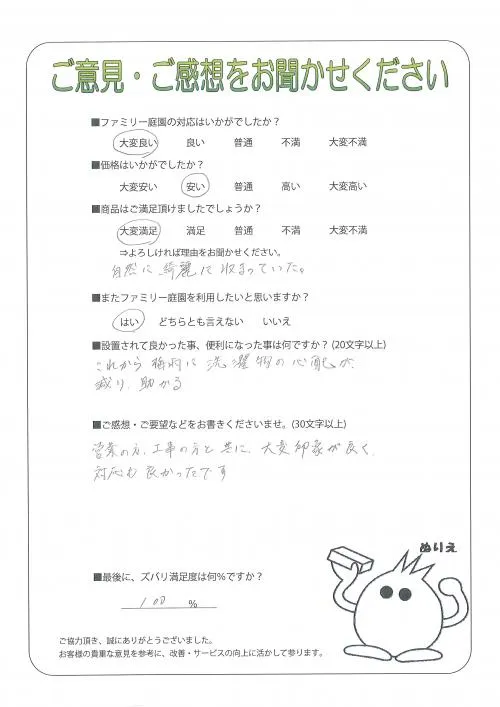 ご意見・ご感想をお聞かせください
■ファミリー庭園の対応はいかがでしたか？
大変良い 良い 普通 不満 大変不満
■価格はいかがでしたか？
大変安い 安い 普通 高い 大変高い
■商品はご満足頂けましたでしょうか？
大変満足 満足 普通 不満 大変不満
⇒よろしければ理由をお聞かせください。
自然に綺麗に収まっていた。
■またファミリー庭園を利用したいと思いますか？
はい どちらとも言えない いいえ
■設置されて良かった事、便利になった事は何ですか？(20文字以上)
これから梅雨に洗濯物の心配が、
減り、助かる
■ご感想・ご要望などをお書きくださいませ。(30文字以上)
営業の方、工事の方と共に、大変印象が良く、
対応も良かったです
ぬりえ
■最後に、ズバリ満足度は何%ですか？
100 %
ご協力頂き、誠にありがとうございました。
お客様の貴重な意見を参考に、改善・サービスの向上に活かして参ります。